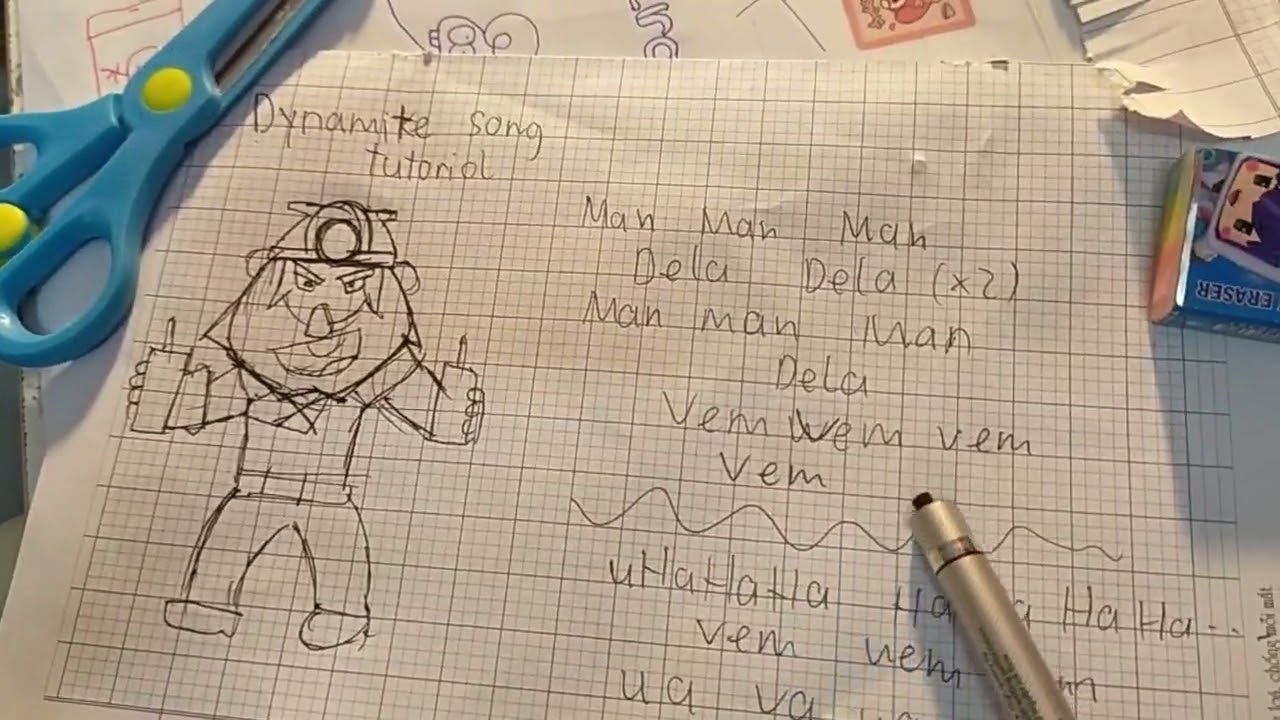 Dynamite song
tutorial
Man Man Man
Dela Dela (x2)
Man man Man
Dela
Vem wem vem
Vem
uHaHaHa Ha HaHa..
vem vem
ua va
ERASER